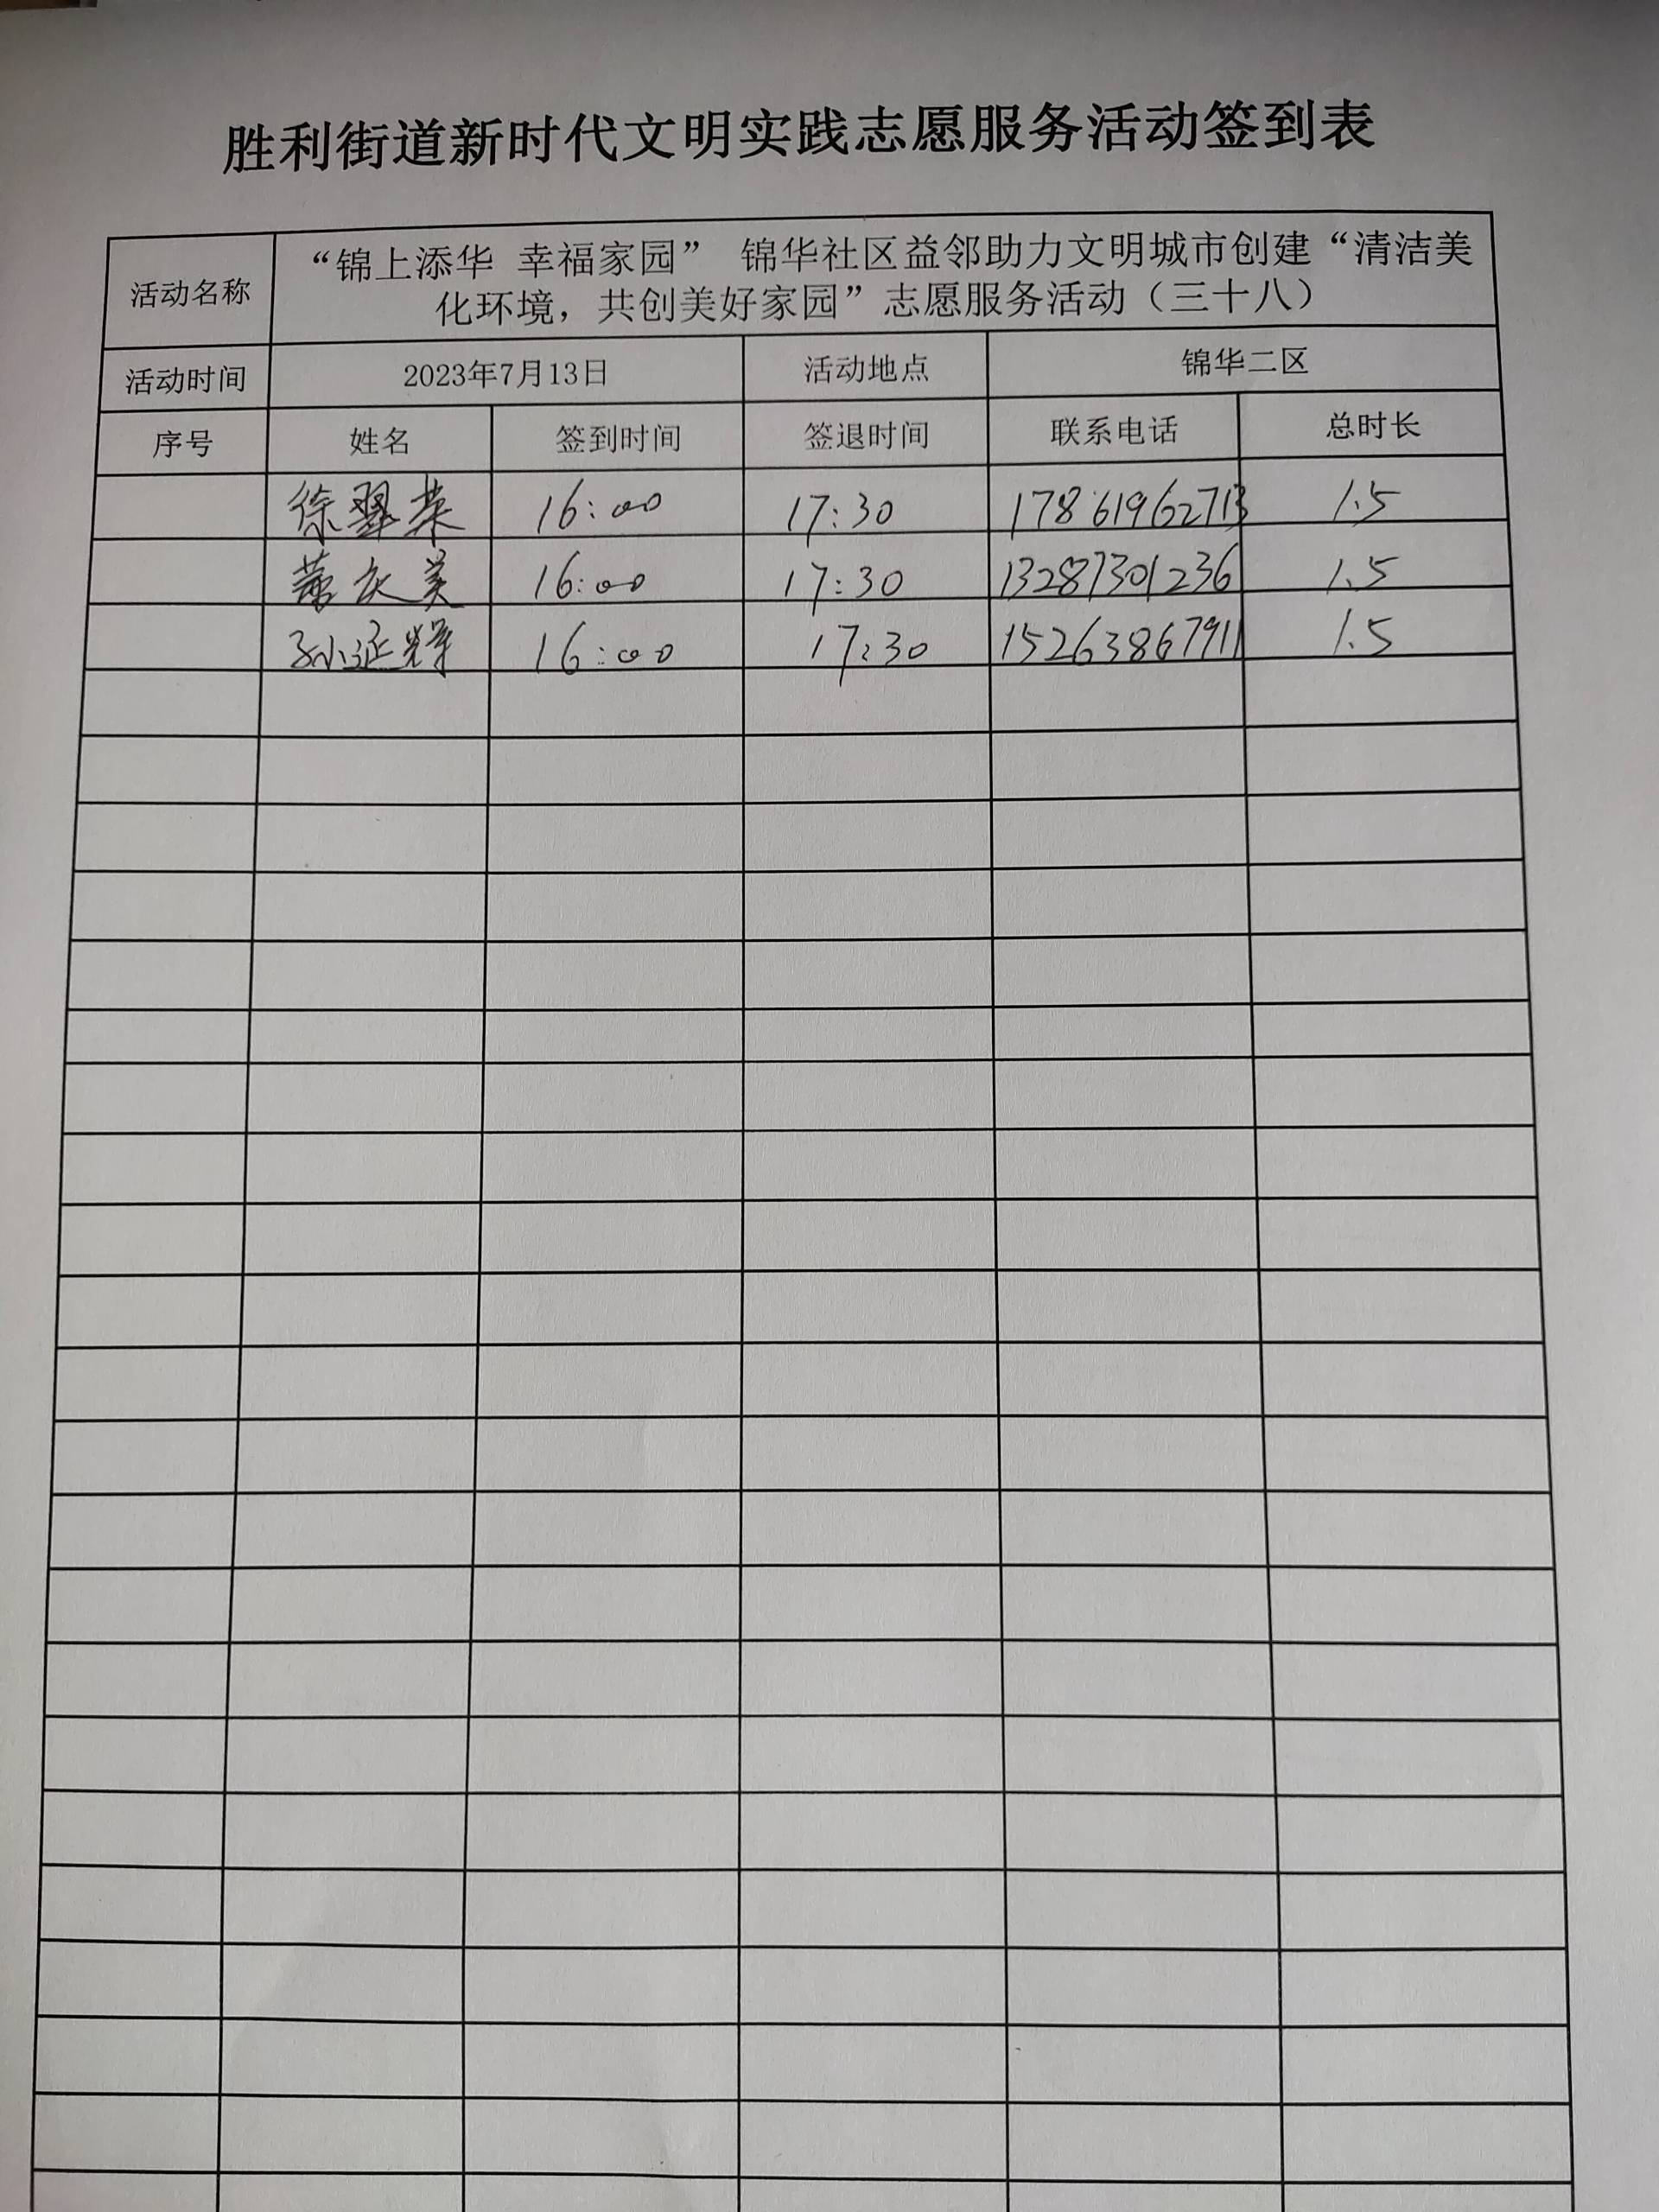 胜利街道新时代文明实践志愿服务活动签到表
活动名称 “锦上添华 幸福家园” 锦华社区益邻助力文明城市创建“清洁美
化环境，共创美好家园”志愿服务活动（三十八）
活动时间 2023年7月13日 活动地点 锦华二区
序号 姓名 签到时间 签退时间 联系电话 总时长
徐翠荣 16:00 17:30 17861962713 1.5
16:00 17:30 13287301236 1.5
孙延辉 16:00 17:30 15263867911 1.5